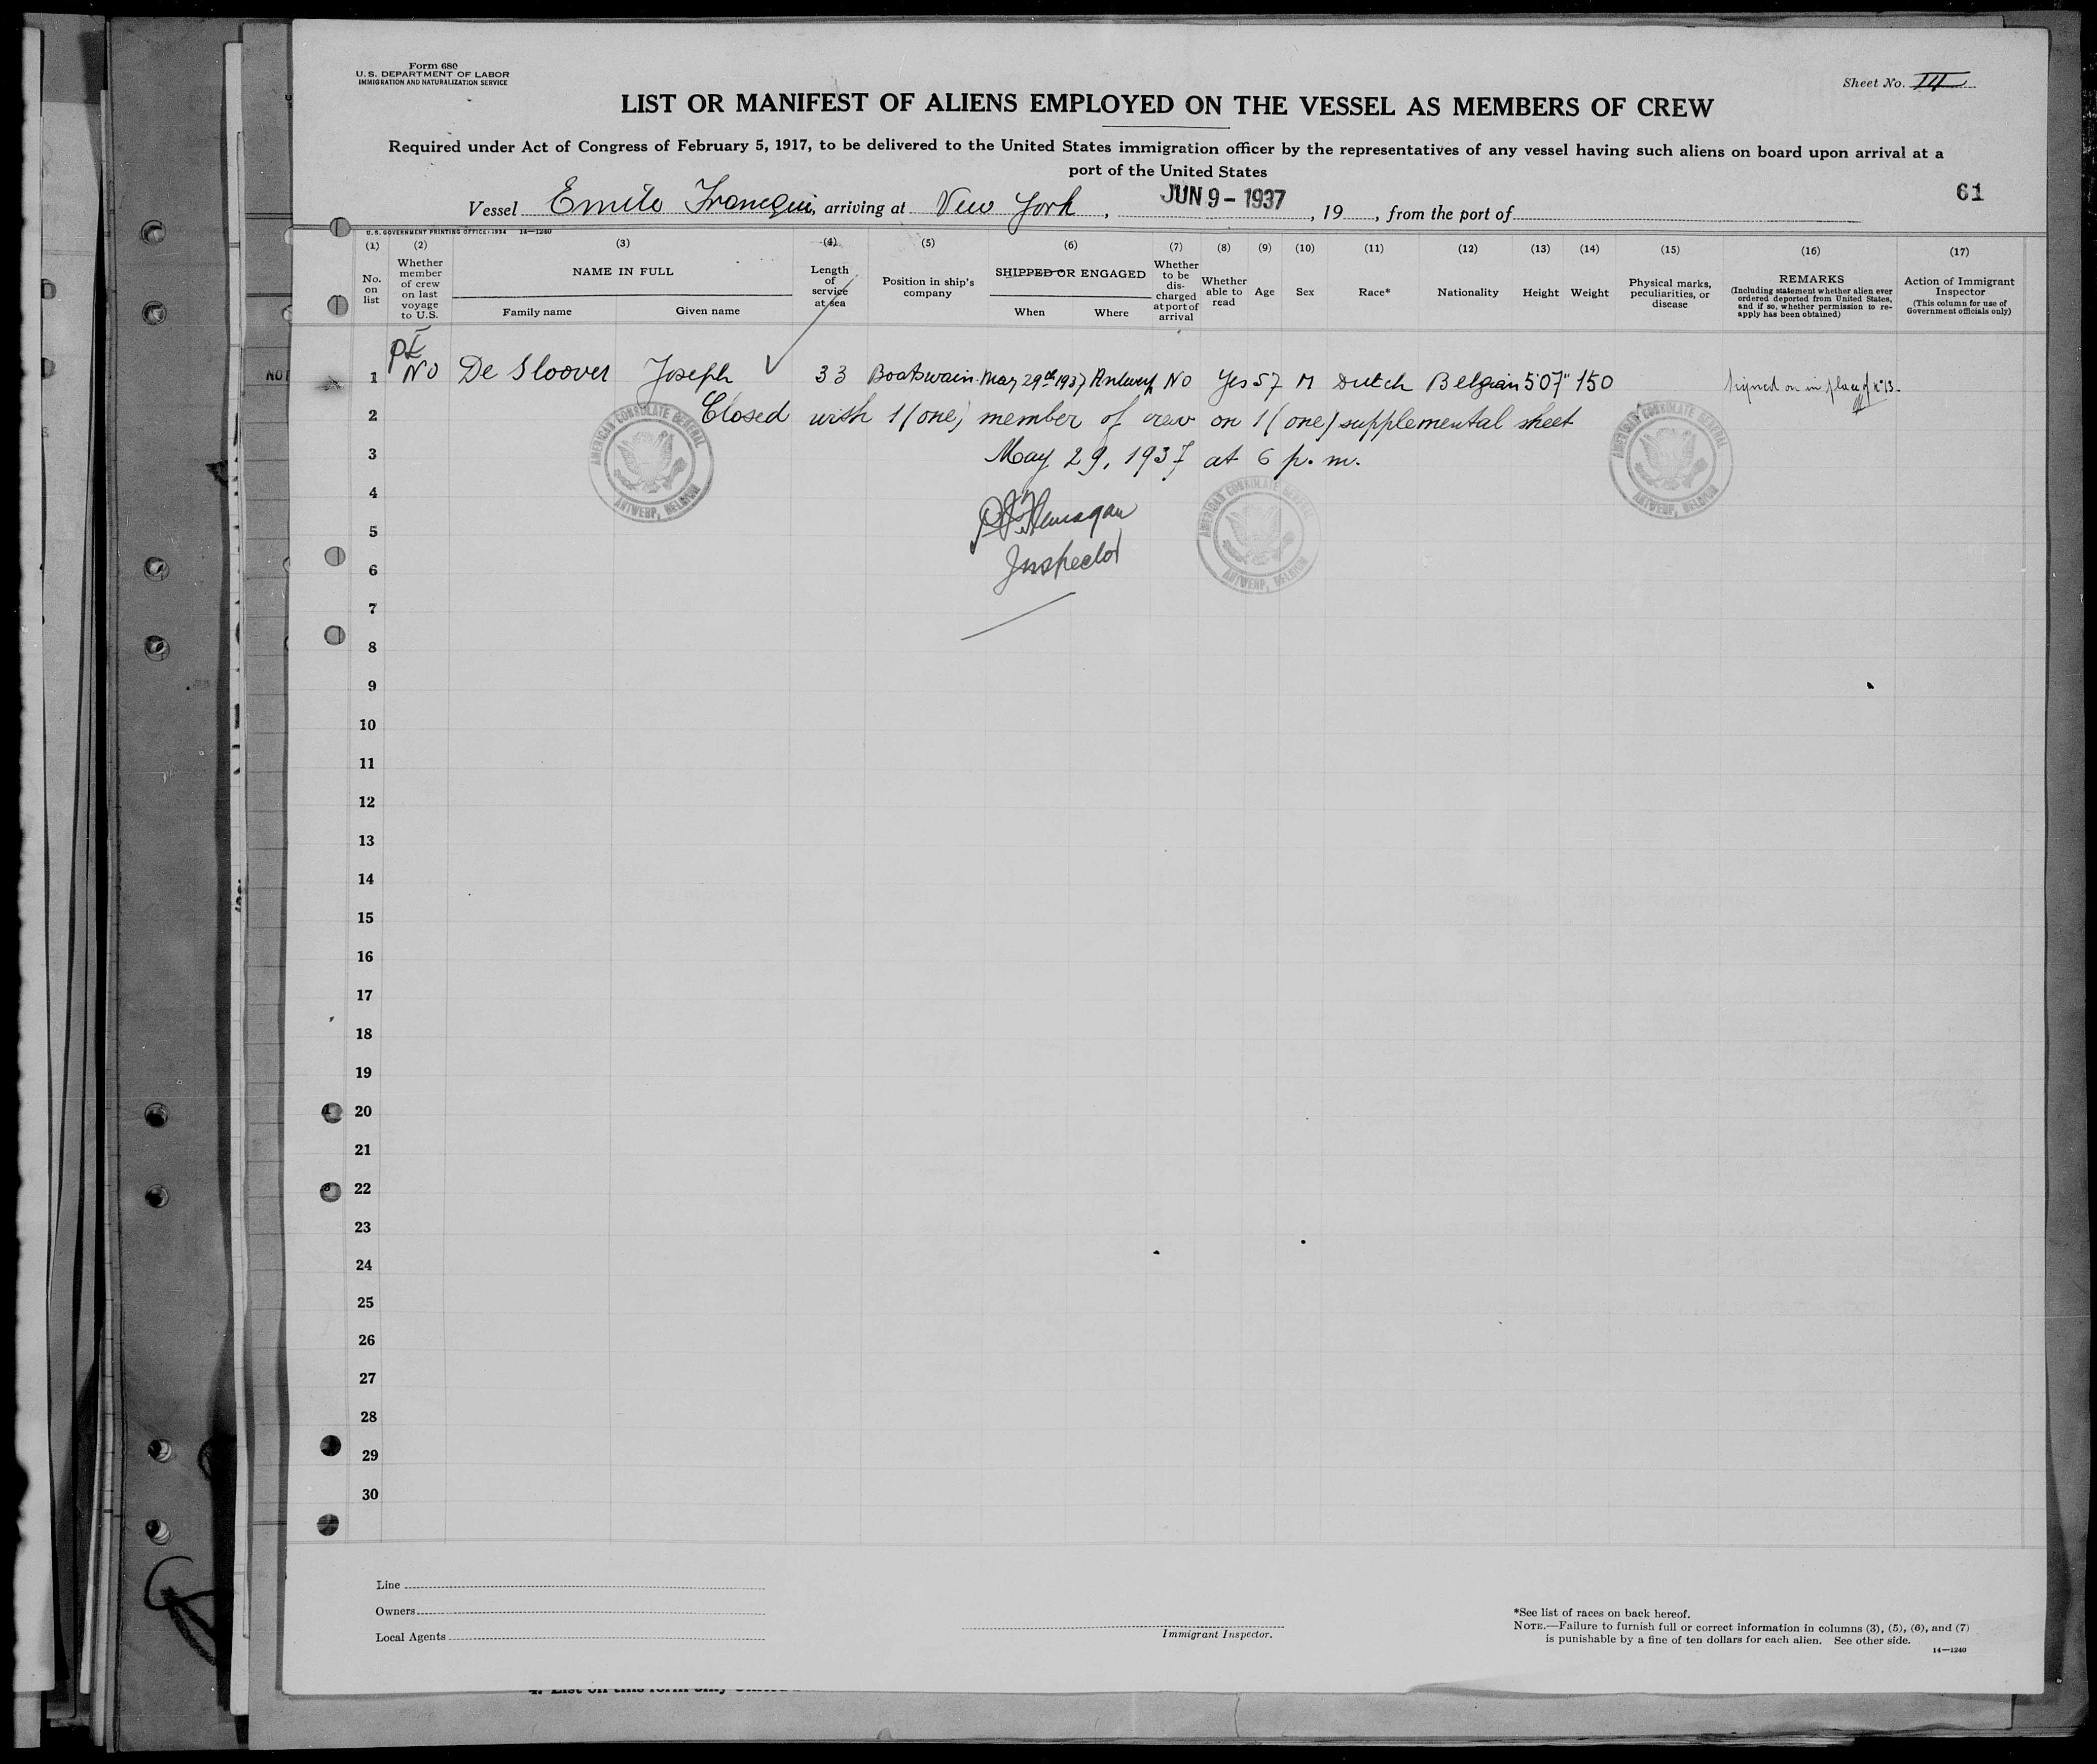 Form 680
U.S. DEPARTMENT OF LABOR
IMMIGRATION AND NATURALIZATION SERVICE
Sheet No. III
LIST OR MANIFEST OF ALIENS EMPLOYED ON THE VESSEL AS MEMBERS OF CREW
Required under Act of Congress of February 5, 1917, to be delivered to the United States immigration officer by the representatives of any vessel having such aliens on board upon arrival at a
port of the United States
Vessel Emile Francqui, arriving at New York, JUN 9 - 1937, 19, from the port of
61
U.S. GOVERNMENT PRINTING OFFICE: 1934 14—1240
(1) (2) (3) (4) (5) (6) (7) (8) (9) (10) (11) (12) (13) (14) (15) (16) (17)
No. on list
Whether member of crew on last voyage to U.S.
NAME IN FULL
Family name
Given name
Length of service at sea
Position in ship's company
SHIPPED OR ENGAGED
When
Where
Whether to be discharged at port of arrival
Whether able to read
Age
Sex
Race*
Nationality
Height
Weight
Physical marks, peculiarities, or disease
REMARKS
(Including statement whether alien ever ordered deported from United States, and if so, whether permission to re-apply has been obtained)
Action of Immigrant Inspector
(This column for use of Government officials only)
NOT
1 No De Sloover Joseph 33 Boatswain May 29th 1937 Antwerp No Yes 57 M Dutch Belgian 5'07" 150 Signed on in place of N°13.
2 Closed with 1 (one) member of crew on 1 (one) supplemental sheet
3 May 29, 1937 at 6 p.m.
AMERICAN CONSULATE GENERAL ANTWERP, BELGIUM
AMERICAN CONSULATE GENERAL ANTWERP, BELGIUM
AMERICAN CONSULATE GENERAL ANTWERP, BELGIUM
4
5 Flanagan
6 Inspector
7
8
9
10
11
12
13
14
15
16
17
18
19
20
21
22
23
24
25
26
27
28
29
30
Line
Owners
Local Agents
Immigrant Inspector.
*See list of races on back hereof.
NOTE.—Failure to furnish full or correct information in columns (3), (5), (6), and (7)
is punishable by a fine of ten dollars for each alien. See other side.
14—1240